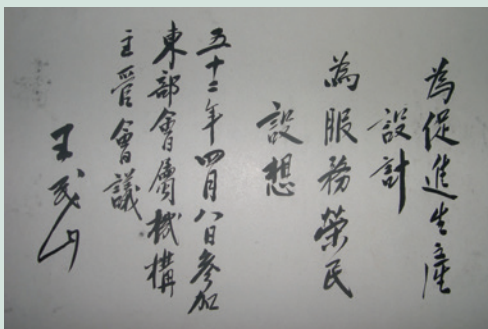 為促進生產
設計
為服務榮民
設想
五十二年四月八日參加
東部會屬機構
主管會議
王